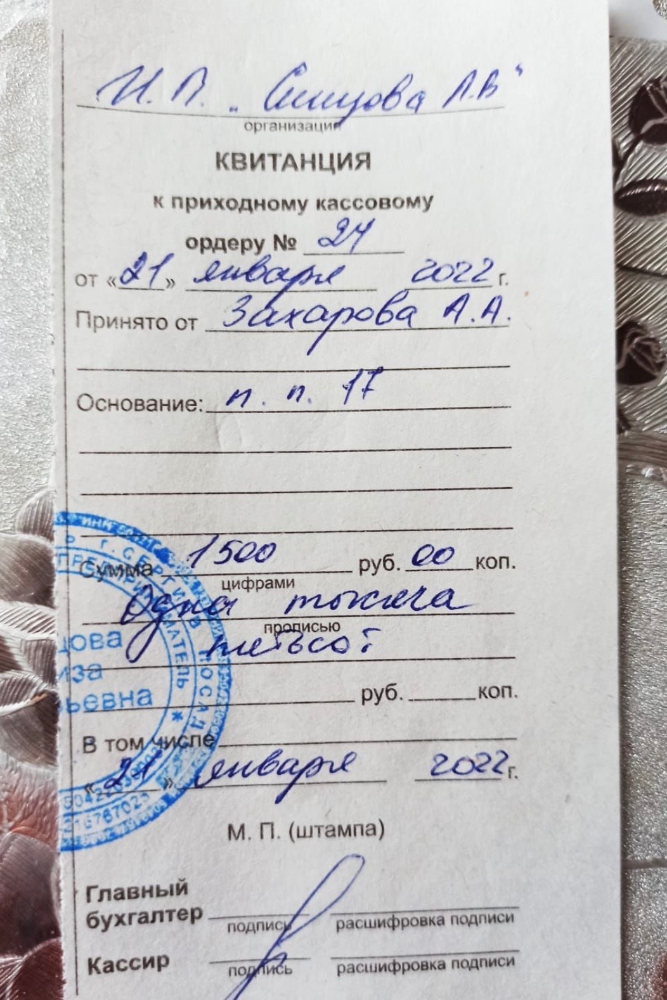 И.П. „Синцова Л.В"
организация
КВИТАНЦИЯ
к приходному кассовому
ордеру № 24
от «21» января 2022 г.
Принято от Захарова А.А.
Основание: п. п. 17
Сумма 1500 руб. 00 коп.
цифрами
Одна тысяча
прописью
пятьсот
руб. коп.
В том числе
«21» января 2022 г.
М. П. (штампа)
Главный
бухгалтер
подпись расшифровка подписи
Кассир
подпись расшифровка подписи
ИНН
г. СЕРГИЕВ ПОСАД
ПРЕДПРИНИМАТЕЛЬ *
цова
иза
ьевна